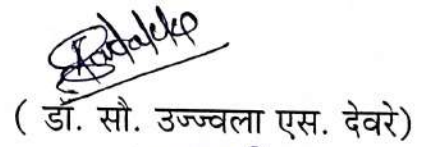 ( डॉ. सौ. उज्ज्वला एस. देवरे)